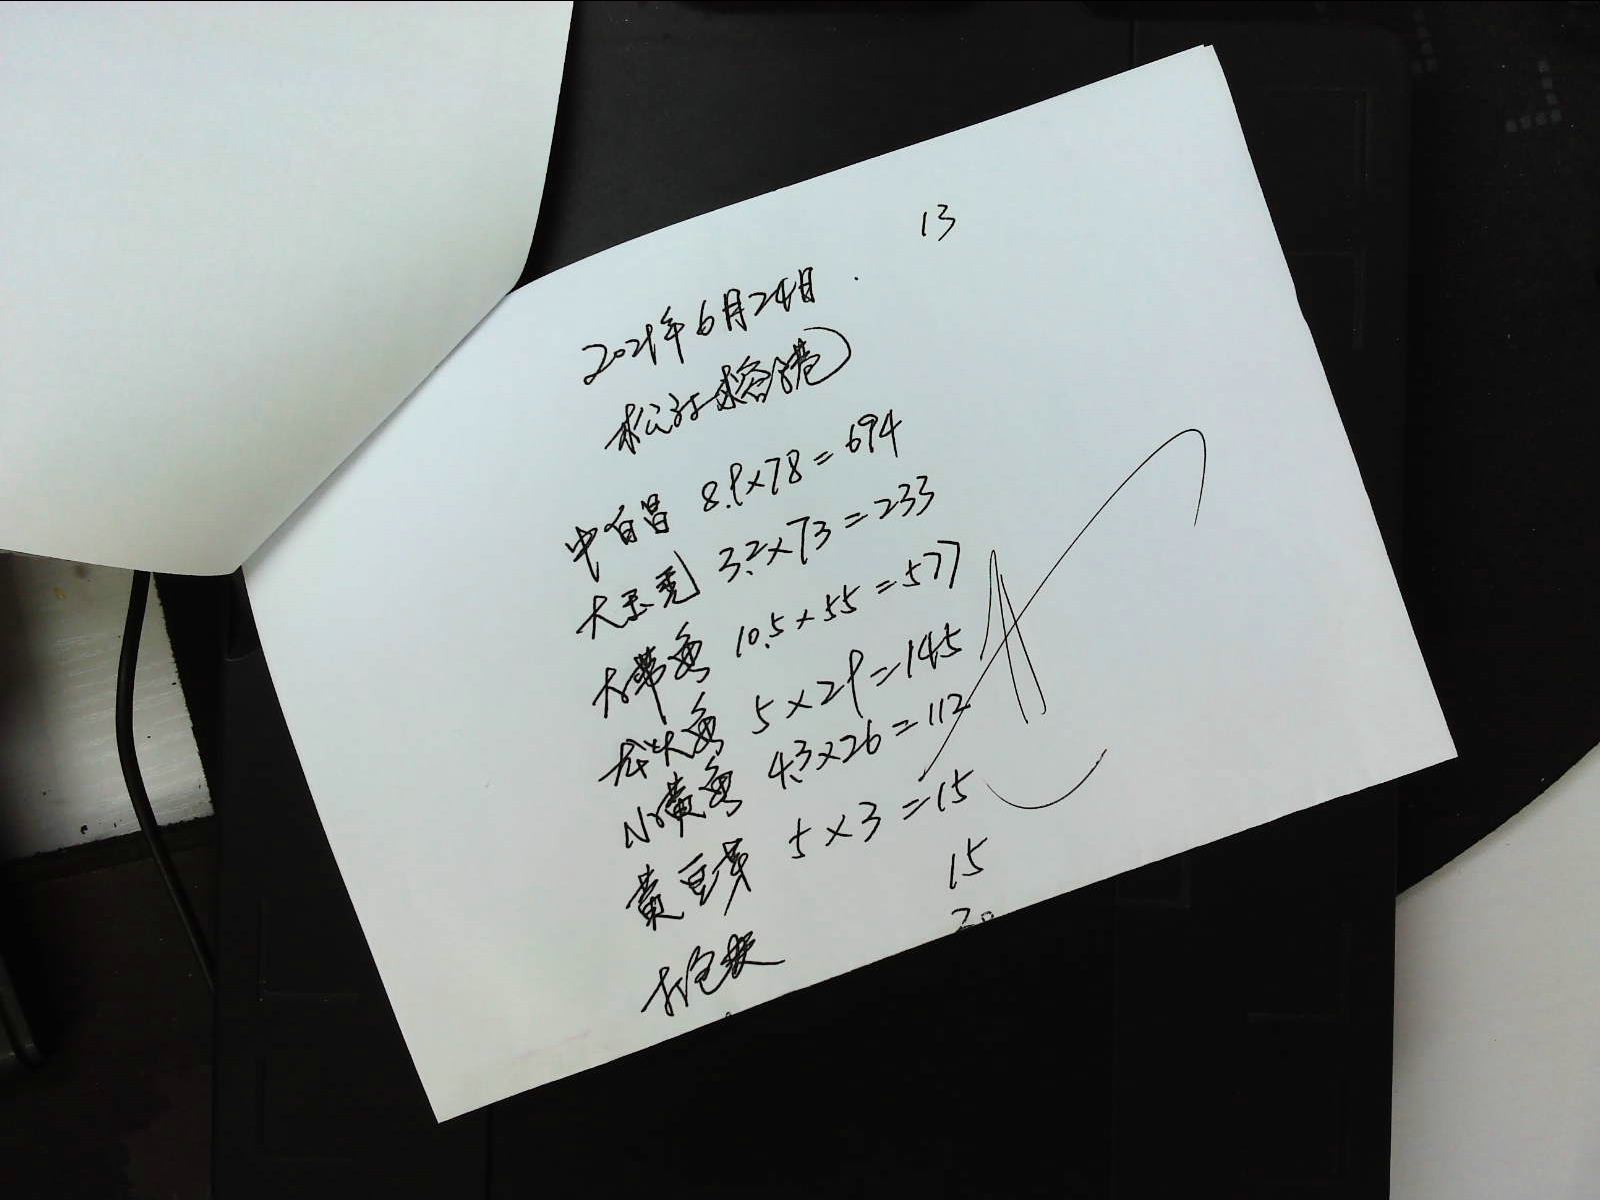 13
2021年6月24日
松江榕港
中白昌 8.9×78=694
大玉秃 3.2×73=233
大带鱼 10.5×55=577
龙头鱼 5×29=145
小黄鱼 4.3×26=112
黄豆芽 5×3=15
打包 15
20